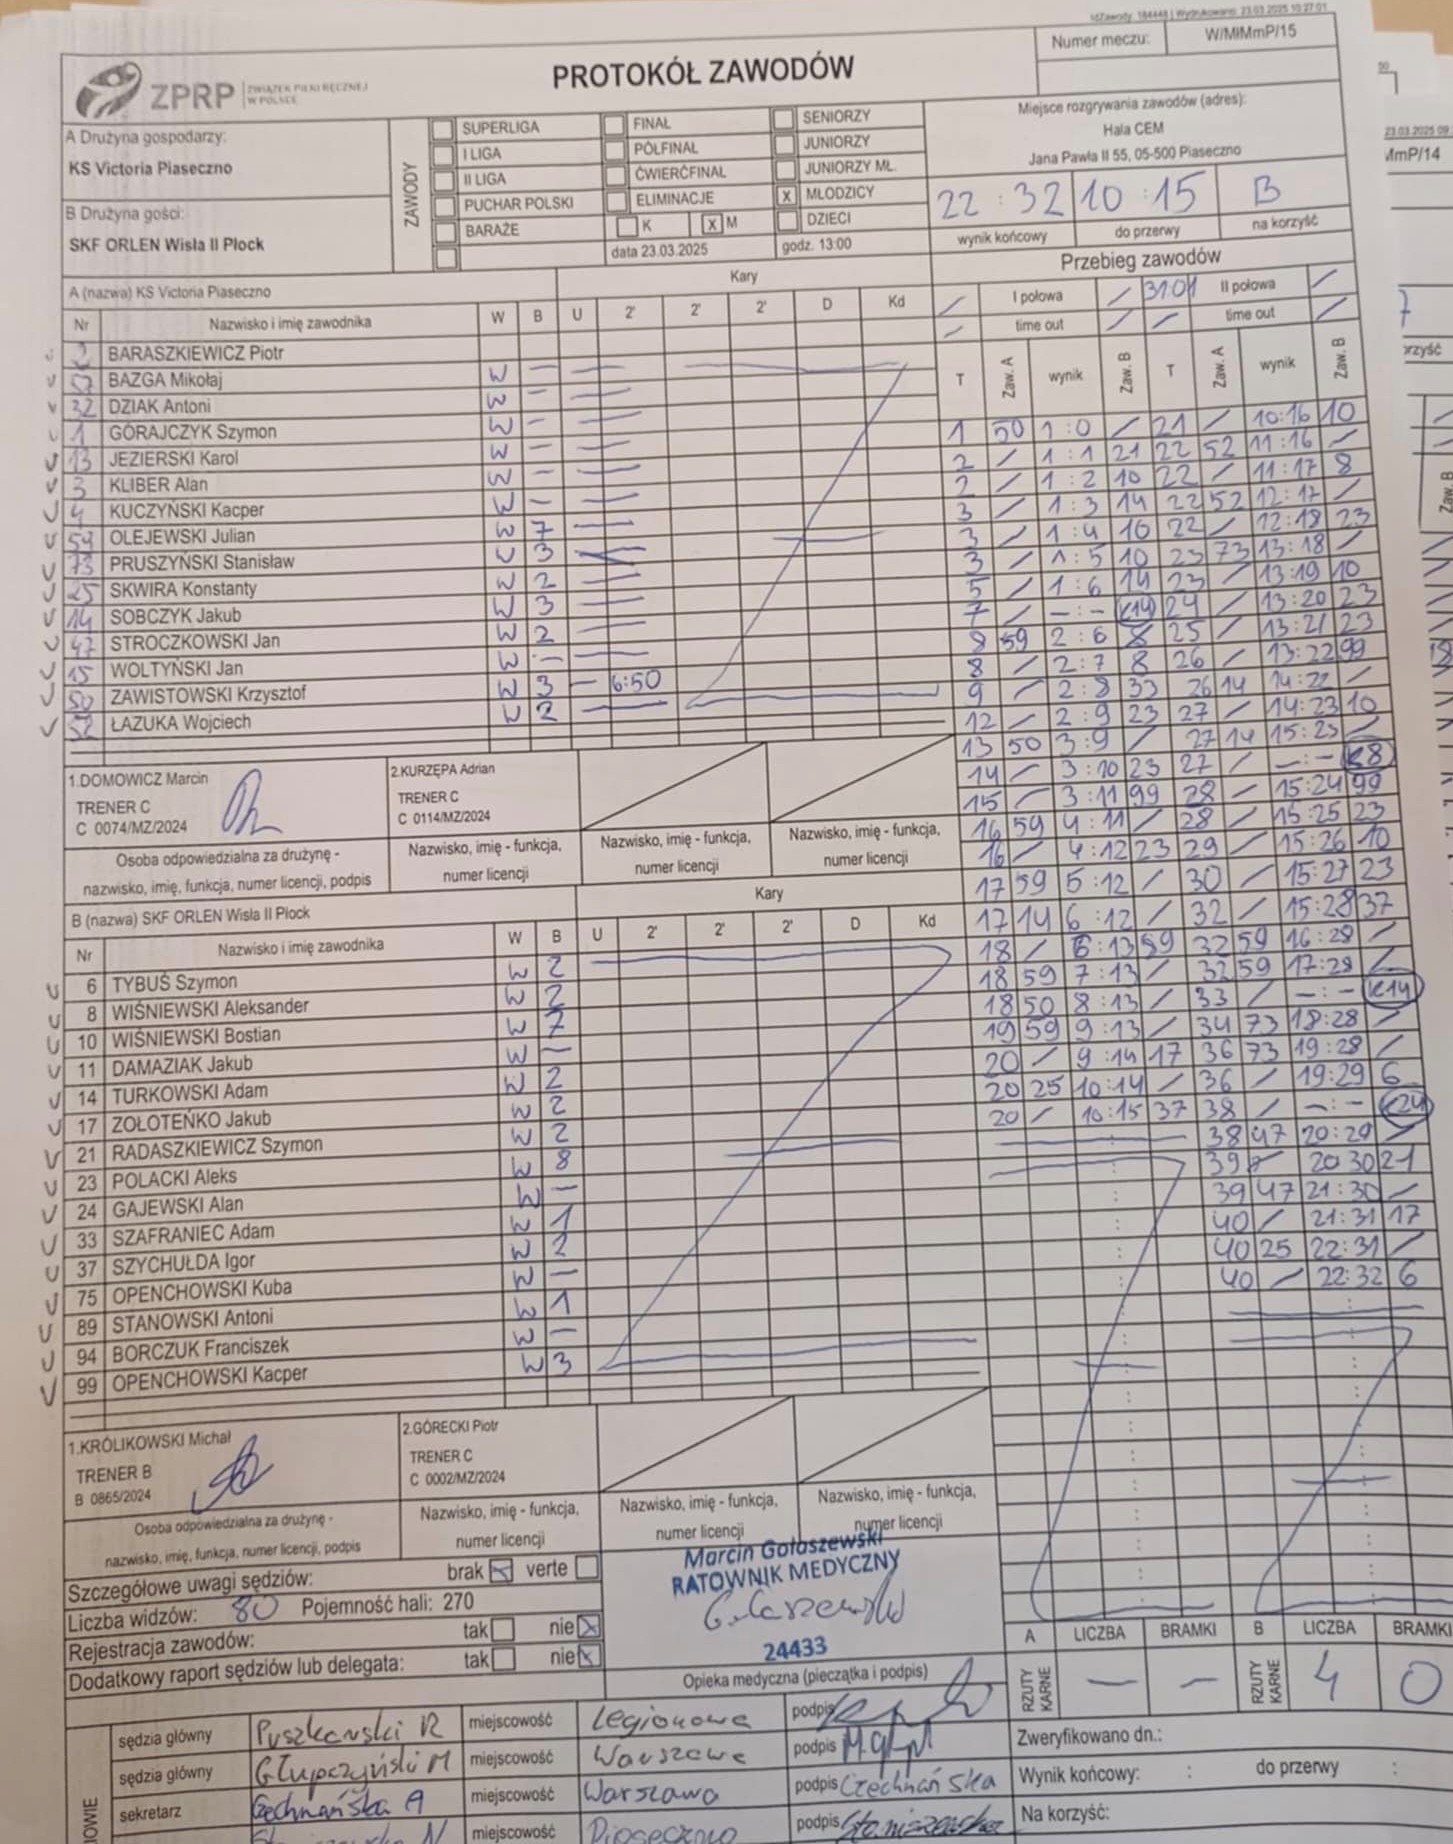 IdZawody: 184448 | Wydrukowano: 23.03.2025 10:27:01
ZPRP ZWIĄZEK PIŁKI RĘCZNEJ W POLSCE
PROTOKÓŁ ZAWODÓW
Numer meczu: W/MłMmP/15
A Drużyna gospodarzy:
KS Victoria Piaseczno
B Drużyna gości:
SKF ORLEN Wisła II Płock
ZAWODY
SUPERLIGA
I LIGA
II LIGA
PUCHAR POLSKI
BARAŻE
FINAŁ
PÓŁFINAŁ
ĆWIERĆFINAŁ
ELIMINACJE
K X M
SENIORZY
JUNIORZY
JUNIORZY MŁ.
X MŁODZICY
DZIECI
data 23.03.2025 godz. 13:00
Miejsce rozgrywania zawodów (adres):
Hala CEM
Jana Pawła II 55, 05-500 Piaseczno
22 : 32 10 : 15 B
wynik końcowy do przerwy na korzyść
A (nazwa) KS Victoria Piaseczno
Kary
Nr Nazwisko i imię zawodnika W B U 2' 2' 2' D Kd
BARASZKIEWICZ Piotr
BAZGA Mikołaj W –
32 DZIAK Antoni W –
1 GÓRAJCZYK Szymon W –
13 JEZIERSKI Karol W –
3 KLIBER Alan W –
4 KUCZYŃSKI Kacper W –
59 OLEJEWSKI Julian W 7
73 PRUSZYŃSKI Stanisław W 3
25 SKWIRA Konstanty W 2
14 SOBCZYK Jakub W 3
47 STROCZKOWSKI Jan W 2
15 WOLTYŃSKI Jan W –
50 ZAWISTOWSKI Krzysztof W 3 – 6:50
52 ŁAZUKA Wojciech W 2
1.DOMOWICZ Marcin
TRENER C
C 0074/MZ/2024
Osoba odpowiedzialna za drużynę -
nazwisko, imię, funkcja, numer licencji, podpis
2.KURZĘPA Adrian
TRENER C
C 0114/MZ/2024
Nazwisko, imię - funkcja,
numer licencji
Nazwisko, imię - funkcja,
numer licencji
Nazwisko, imię - funkcja,
numer licencji
B (nazwa) SKF ORLEN Wisła II Płock
Kary
Nr Nazwisko i imię zawodnika W B U 2' 2' 2' D Kd
6 TYBUŚ Szymon W 2
8 WIŚNIEWSKI Aleksander W 2
10 WIŚNIEWSKI Bostian W 7
11 DAMAZIAK Jakub W –
14 TURKOWSKI Adam W 2
17 ZOŁOTEŃKO Jakub W 2
21 RADASZKIEWICZ Szymon W 2
23 POLACKI Aleks W 8
24 GAJEWSKI Alan W –
33 SZAFRANIEC Adam W 1
37 SZYCHUŁDA Igor W 2
75 OPENCHOWSKI Kuba W –
89 STANOWSKI Antoni W 1
94 BORCZUK Franciszek W –
99 OPENCHOWSKI Kacper W 3
1.KRÓLIKOWSKI Michał
TRENER B
B 0865/2024
Osoba odpowiedzialna za drużynę -
nazwisko, imię, funkcja, numer licencji, podpis
2.GÓRECKI Piotr
TRENER C
C 0002/MZ/2024
Nazwisko, imię - funkcja,
numer licencji
Nazwisko, imię - funkcja,
numer licencji
Nazwisko, imię - funkcja,
numer licencji
Przebieg zawodów
/ I połowa / 31:01 II połowa /
/ time out / / time out /
T Zaw. A wynik Zaw. B T Zaw. A wynik Zaw. B
1 50 1 : 0 / 21 / 10:16 10
2 / 1 : 1 21 22 52 11:16 /
2 / 1 : 2 10 22 / 11:17 8
3 / 1 : 3 14 22 52 12:17 /
3 / 1 : 4 10 22 / 12:18 23
3 / 1 : 5 10 23 73 13:18 /
5 / 1 : 6 14 23 / 13:19 10
7 / – : – K14 24 / 13:20 23
8 59 2 : 6 / 25 / 13:21 23
8 / 2 : 7 8 26 / 13:22 99
9 / 2 : 8 33 26 14 14:22 /
12 / 2 : 9 23 27 / 14:23 10
13 50 3 : 9 / 27 14 15:23 /
14 / 3 : 10 23 27 / – : – K8
15 / 3 : 11 99 28 / 15:24 99
16 59 4 : 11 / 28 / 15:25 23
16 / 4 : 12 23 29 / 15:26 10
17 59 5 : 12 / 30 / 15:27 23
17 14 6 : 12 / 32 / 15:28 37
18 / 6 : 13 89 32 59 16:28 /
18 59 7 : 13 / 32 59 17:28 /
18 50 8 : 13 / 33 / – : – K14
19 59 9 : 13 / 34 73 18:28 /
20 / 9 : 14 17 36 73 19:28 /
20 25 10:14 / 36 / 19:29 6
20 / 10:15 37 38 / – : – K24
38 47 20:29 /
39 / 20:30 21
39 47 21:30 /
40 / 21:31 17
40 25 22:31 /
40 / 22:32 6
Szczegółowe uwagi sędziów: brak X verte
Liczba widzów: 80 Pojemność hali: 270
Rejestracja zawodów: tak nie X
Dodatkowy raport sędziów lub delegata: tak nie X
Marcin Gołaszewski
RATOWNIK MEDYCZNY
24433
Opieka medyczna (pieczątka i podpis)
A LICZBA BRAMKI B LICZBA BRAMKI
RZUTY KARNE – – RZUTY KARNE 4 0
sędzia główny Puszkarski R miejscowość Legionowo podpis
sędzia główny Głupczyński M miejscowość Warszawa podpis
sekretarz Czechnańska A miejscowość Warszawa podpis Czechnańska
miejscowość Piaseczno podpis
Zweryfikowano dn.:
Wynik końcowy: : do przerwy :
Na korzyść:
23.03.2025 09
MmP/14
Zaw. B